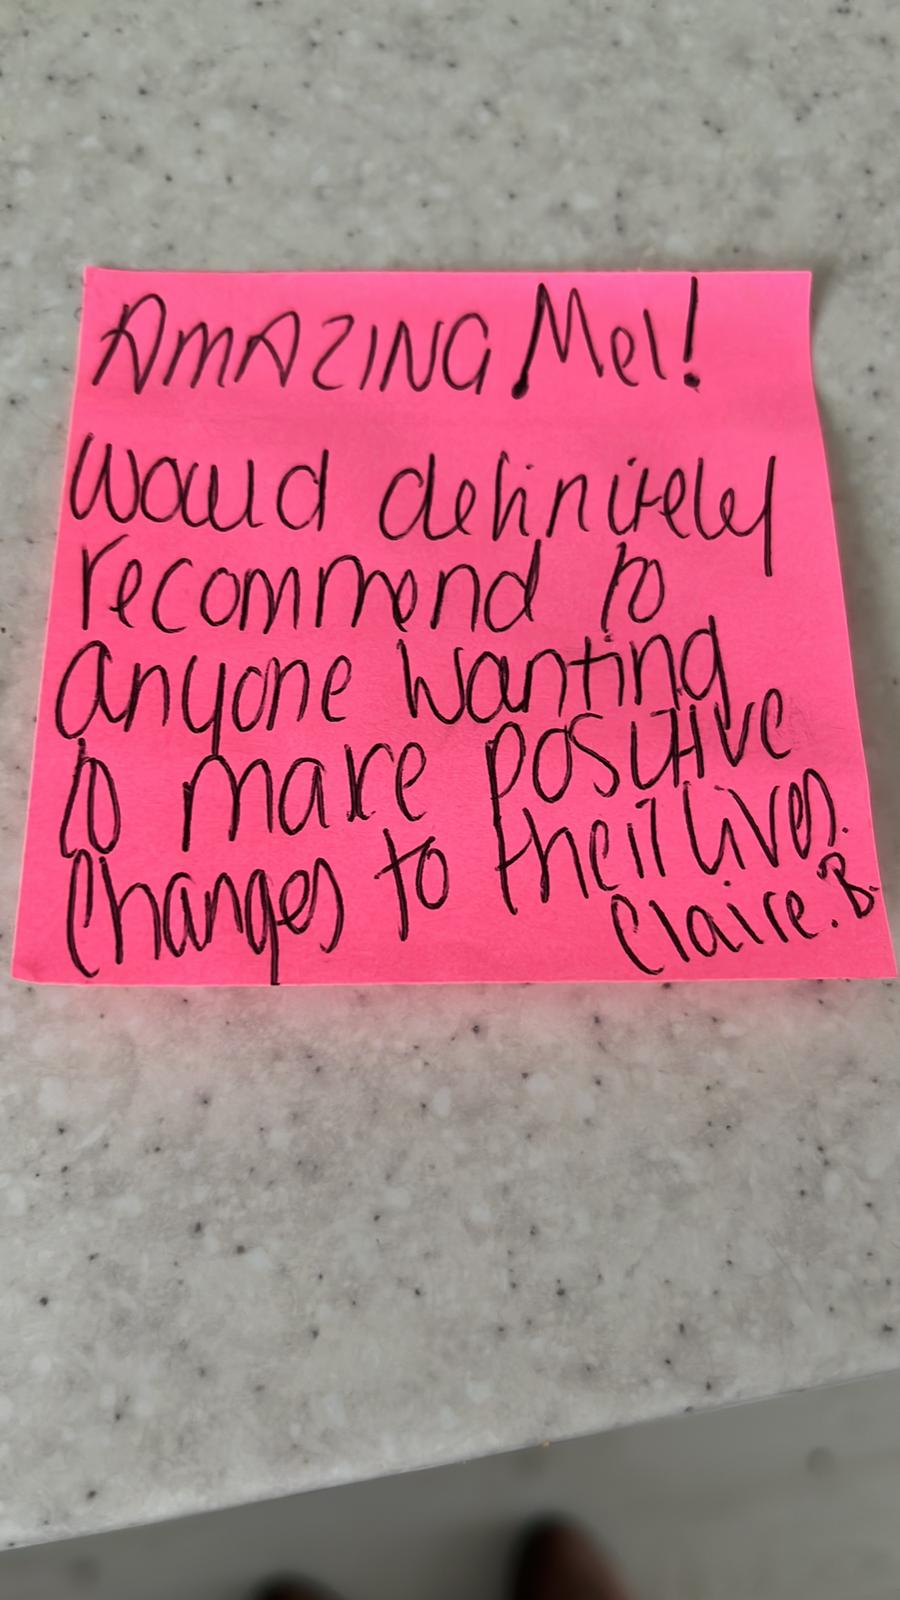 AMAZING Mel!
Would definitely
recommend to
anyone wanting
to make positive
changes to their lives.
Claire.B.